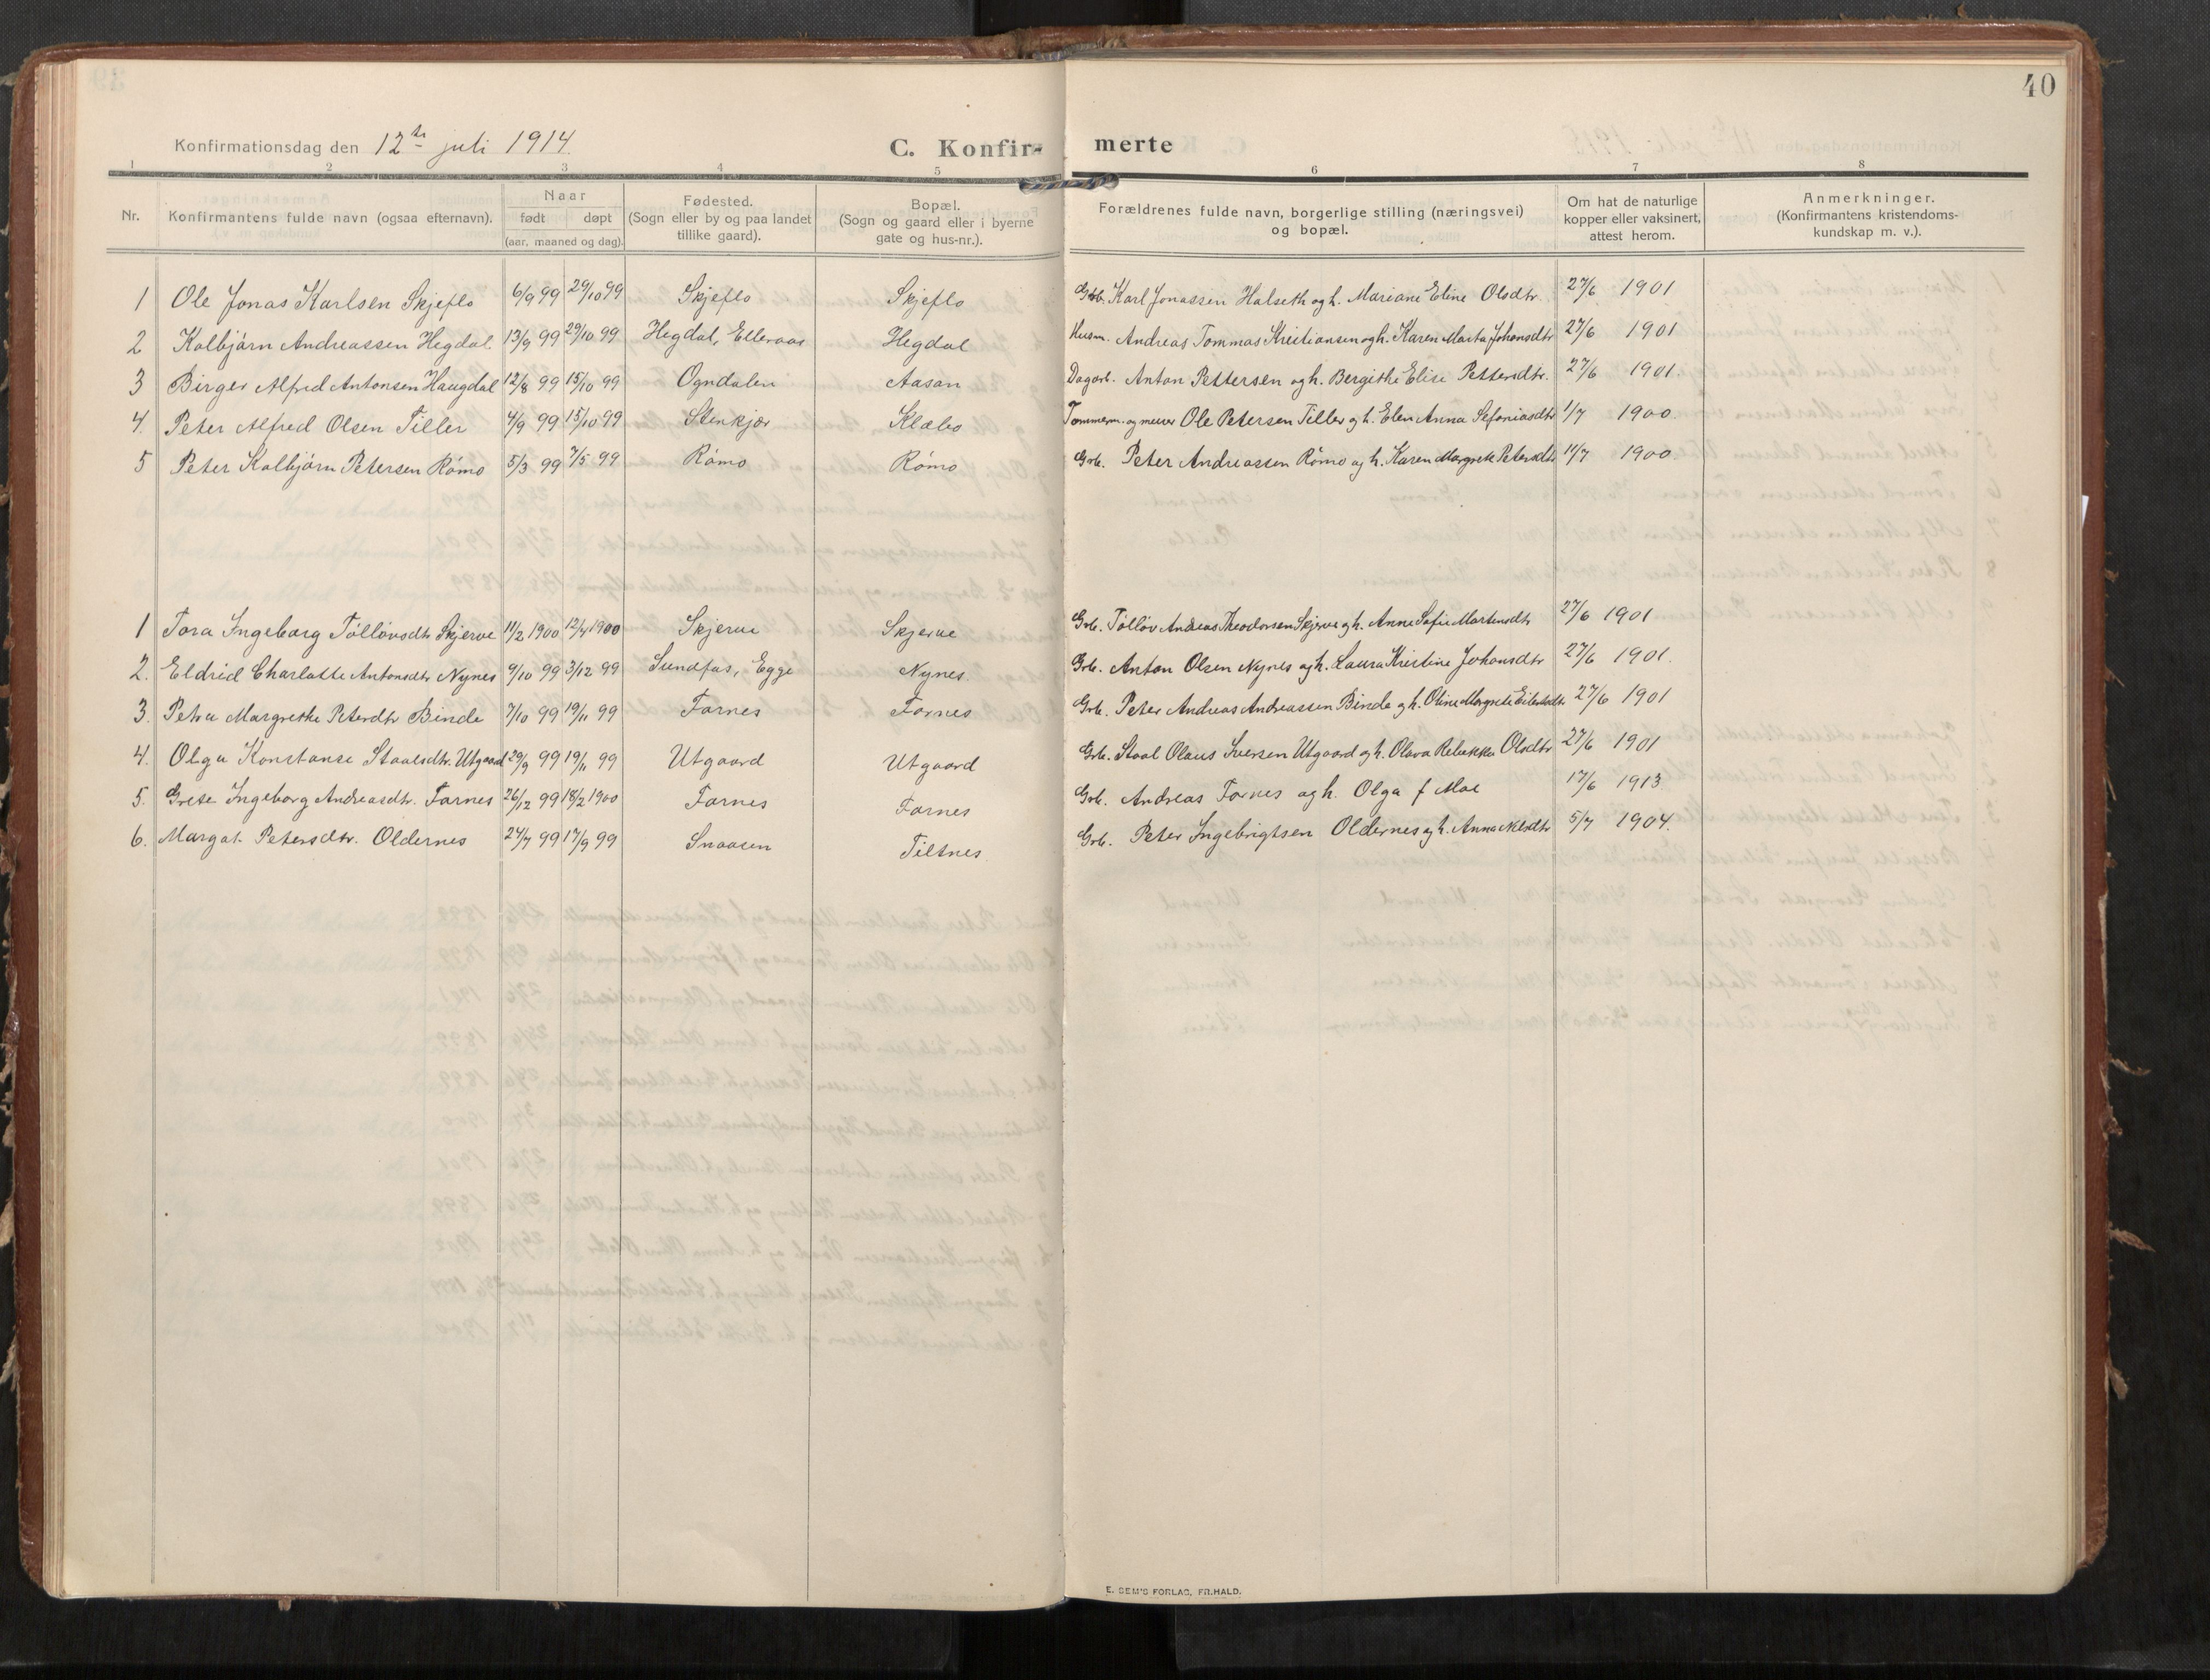 40
Konfirmationsdag den 12te juli 1914. C. Konfir- merte
1 2 3 4 5 6 7 8
Nr. Konfirmantens fulde navn (ogsaa efternavn). Naar født døpt (aar, maaned og dag). Fødested. (Sogn eller by og paa landet tillike gaard). Bopæl. (Sogn og gaard eller i byerne gate og hus-nr.). Forældrenes fulde navn, borgerlige stilling (næringsvei) og bopæl. Om hat de naturlige kopper eller vaksinert, attest herom. Anmerkninger. (Konfirmantens kristendoms- kundskap m. v.).
1 Ole Jonas Karlsen Skjeflo 6/9 99 29/10 99 Skjeflo Skjeflo Grb. Karl Jonassen Halseth og h. Mariane Eline Olsdtr. 27/6 1901
2 Kolbjørn Andreassen Hegdal 13/9 99 29/10 99 Hegdal, Elleraas Hegdal Husm. Andreas Tommas Kristiansen og h. Karen Marta Johansdtr 27/6 1901
3 Birger Alfred Antonsen Haugdal 12/8 99 15/10 99 Ogndalen Aasan Dagarb. Anton Pettersen og h. Bergithe Elise Pettersdtr. 27/6 1901
4. Peter Alfred Olsen Tiller 4/9 99 15/10 99 Stenkjær Klæbo Tømmerm. og murer Ole Petersen Tiller og h. Elen Anna Sefaniasdtr 1/7 1900
5 Peter Kolbjørn Petersen Rømo 5/3 99 7/5 99 Rømo Rømo Grb. Peter Andreassen Rømo og h. Karen Margrete Petersdtr 11/7 1900
1 Tora Ingeborg Tølløvsdtr Skjerve 11/2 1900 12/4 1900 Skjerve Skjerve Grb. Tølløv Andreas Theodorsen Skjerve og h. Anne Sofie Martensdtr 27/6 1901
2. Eldrid Charlotte Antonsdtr Nynes 9/10 99 3/12 99 Sundfas, Egge Nynes Grb. Anton Olsen Nynes og h. Laura Kristine Johansdtr 27/6 1901.
3. Petra Margrethe Petersdtr Binde 7/10 99 19/11 99 Fornes Fornes Grb. Peter Andreas Andreassen Binde og h. Oline Margrete Eilertsdtr 27/6 1901
4. Olga Konstanse Staalsdtr. Utgaard 29/9 99 19/11 99 Utgaard Utgaard Grb. Staal Olaus Iversen Utgaard og h. Olava Rebekka Olsdtr 27/6 1901
5. Grete Ingeborg Andreasdtr. Fornes 26/12 99 18/2 1900 Fornes Fornes Grb. Andreas Fornes og h. Olga f Moe 17/6 1913
6. Margot Petersdtr. Oldernes 24/7 99 17/9 99 Snaasen Tiltnes Grb. Peter Ingebrigtsen Oldernes og h. Anna Nilsdtr 5/7 1904.
E. SEM'S FORLAG, FR.HALD.